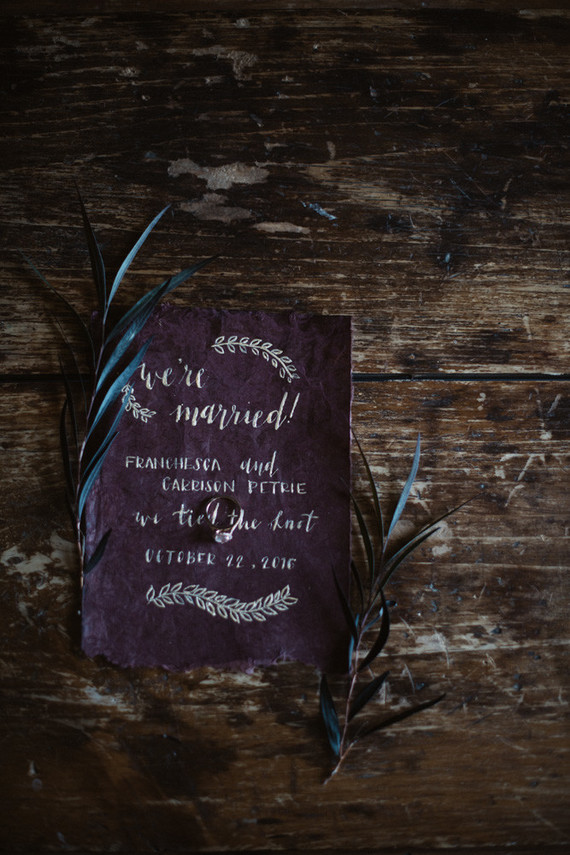 we're
married!
FRANCHESCA and
GARRISON PETRIE
we tied the knot
OCTOBER 22, 2016